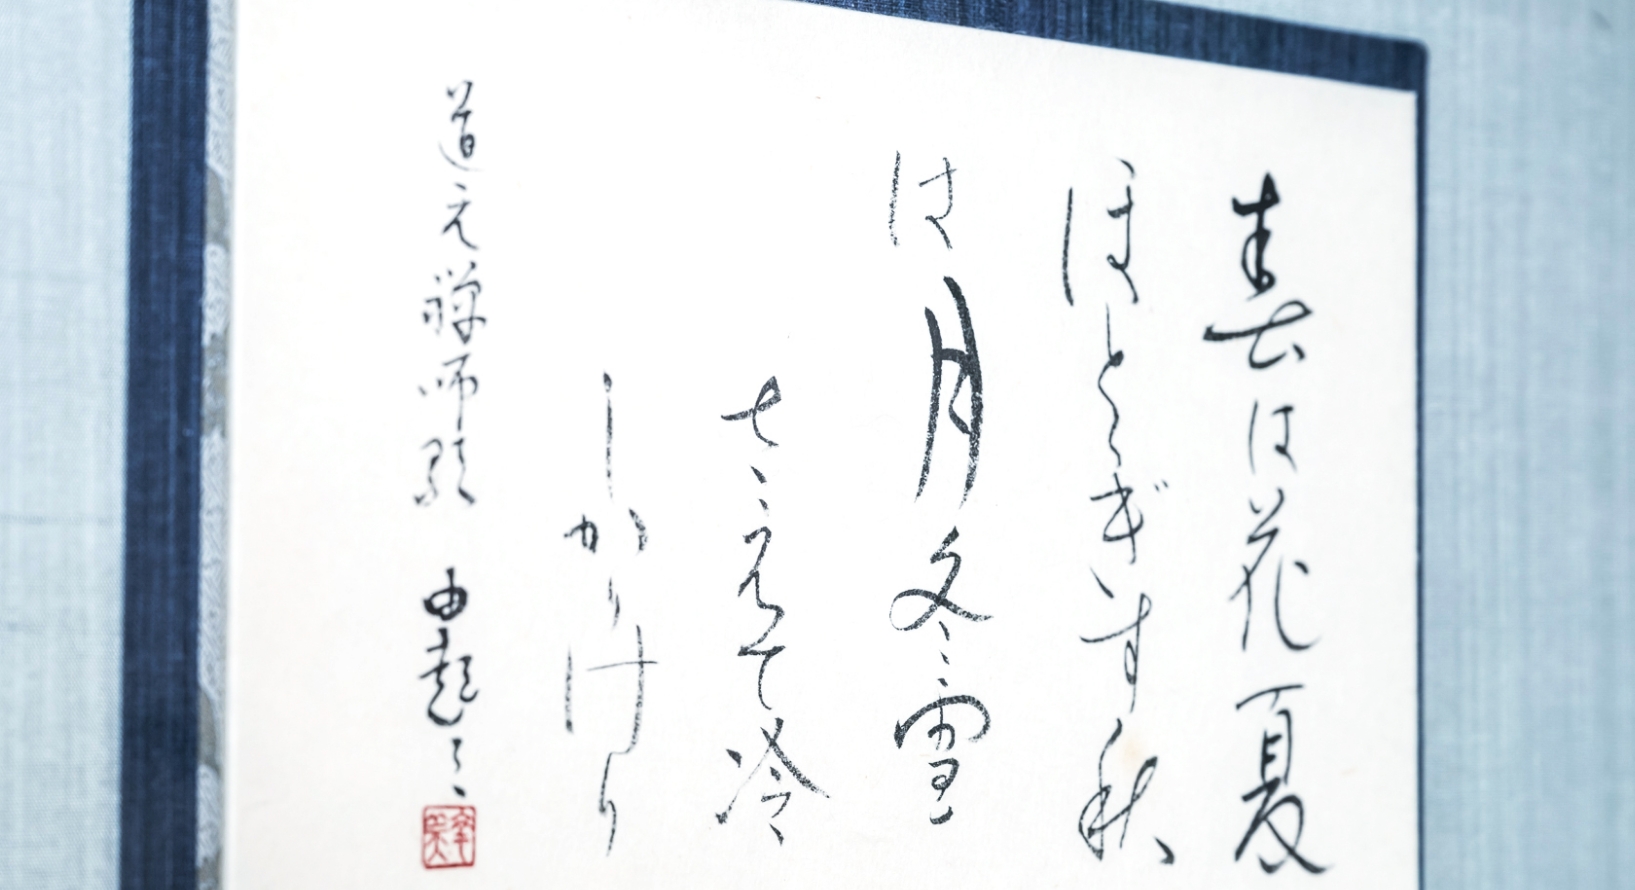 春は花夏
ほとゝぎす秋
は月冬雪
さえて冷
しかりけり
道元禅師